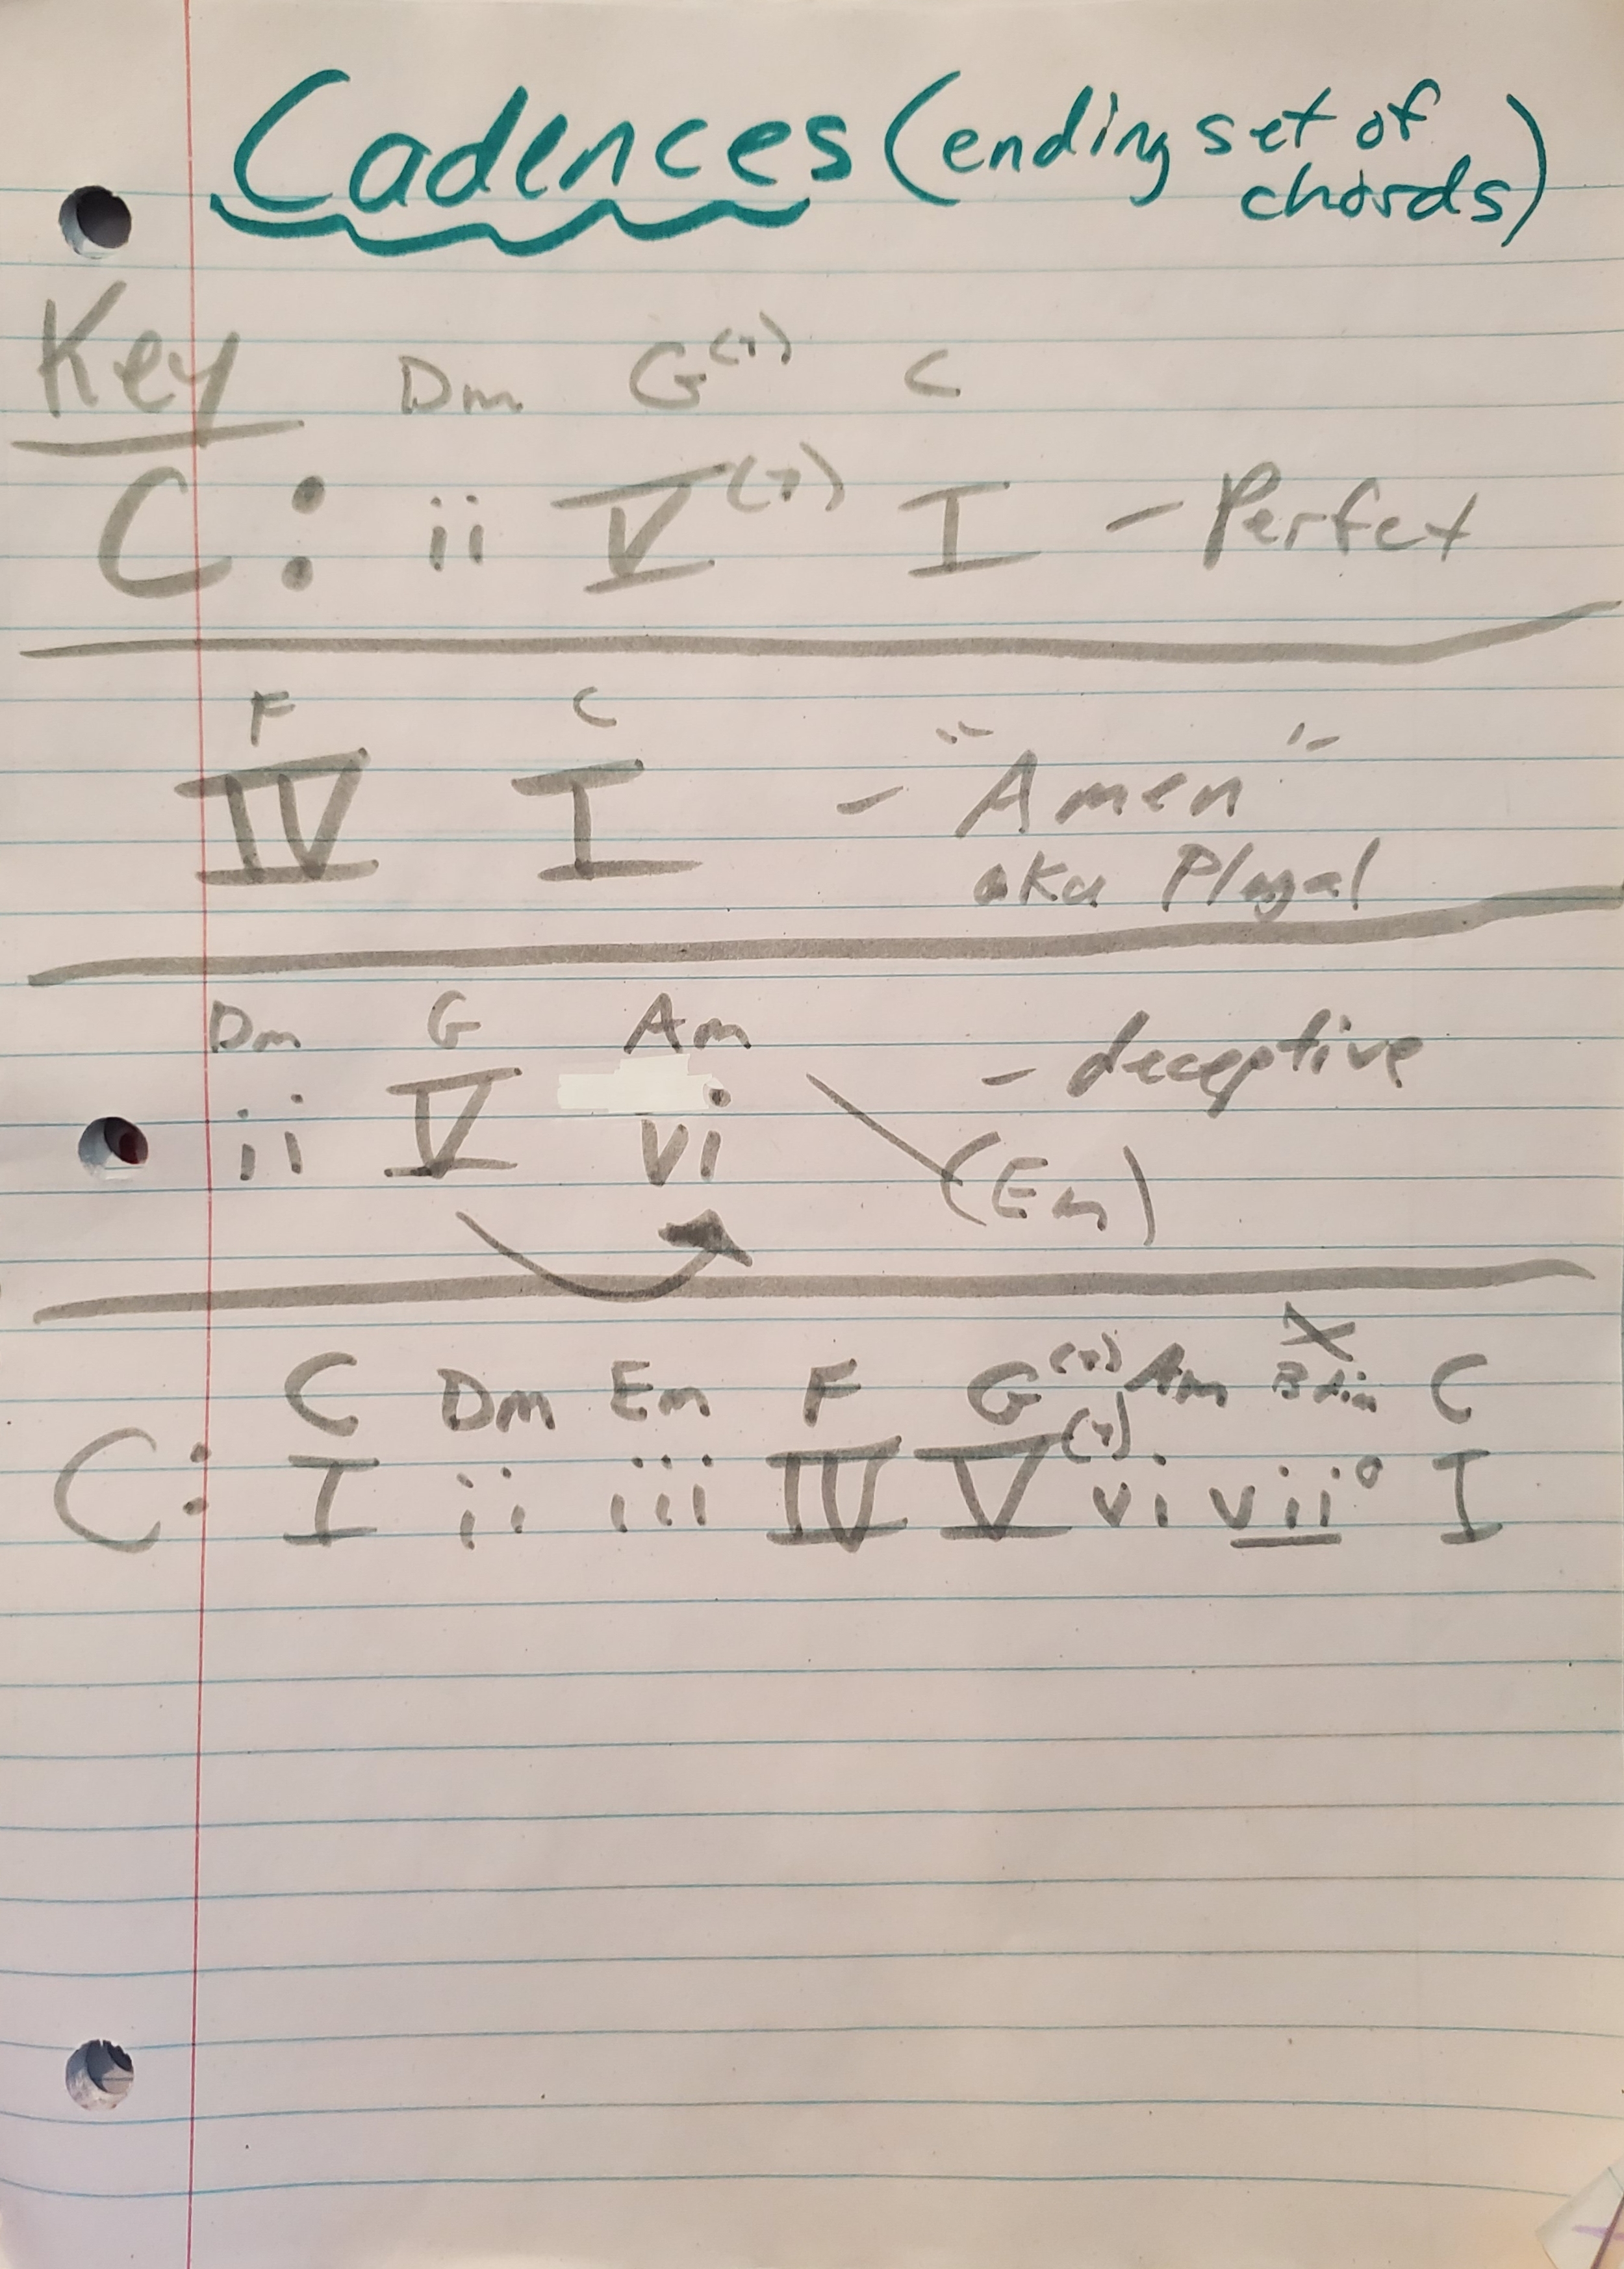 Cadences (ending set of
chords)
Key
Dm G(7) C
C: ii V(7) I - Perfect
F C
IV I - "Amen"
aka Plagal
Dm G Am
- deceptive
ii V vi
(Em)
X
C Dm Em F G(7) Am Bdim C
C: I ii iii IV V(7) vi vii° I